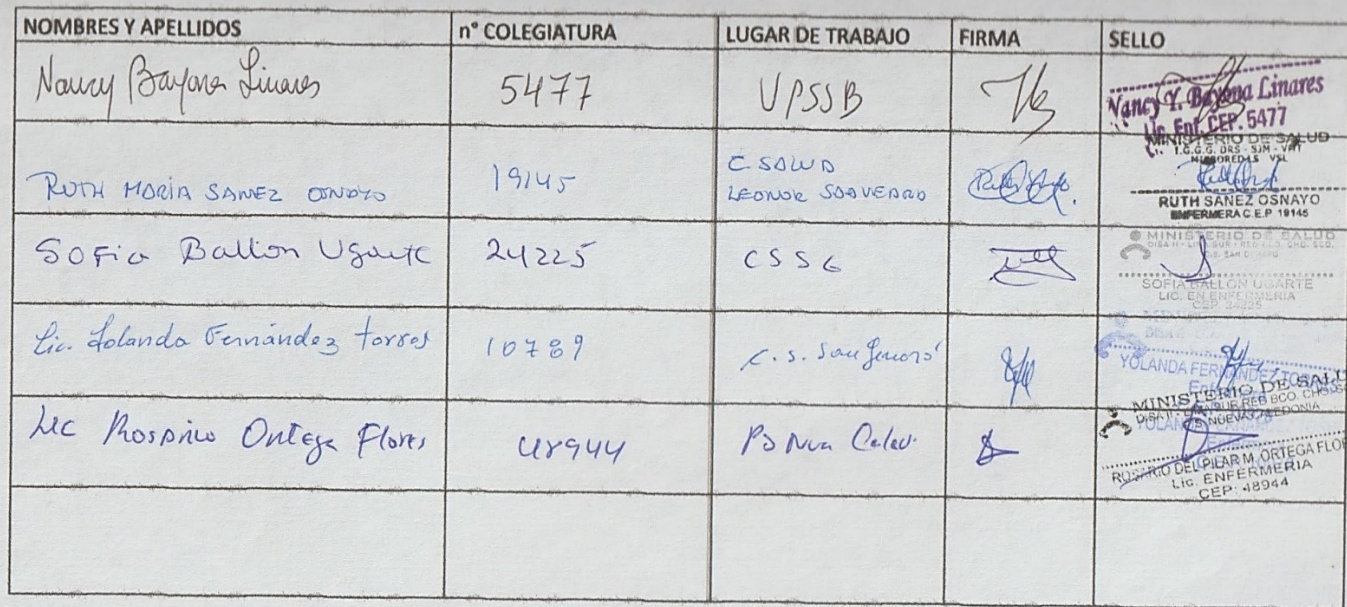 NOMBRES Y APELLIDOS n° COLEGIATURA LUGAR DE TRABAJO FIRMA SELLO
Nancy Bayona Linares 5477 UPSSB
Nancy Y. Bayona Linares
Lic. Enf. CEP. 5477
RUTH MARIA SANEZ OSNAYO 19145 C SALUD
LEONOR SAAVEDRA
MINISTERIO DE SALUD
RUTH SANEZ OSNAYO
ENFERMERA C.E.P 19145
Sofia Ballon Ugarte 24225 CSS6
MINISTERIO DE SALUD
SOFIA BALLON UGARTE
LIC. EN ENFERMERIA
CEP 24225
Lic. Yolanda Fernández Torres 10789 C. S. San Genaro
YOLANDA FERNANDEZ TORRES
Lic Rosario Ortega Flores 48944 PS Nva Caled.
MINISTERIO DE SALUD
CS NUEVA CALEDONIA
ROSARIO DEL PILAR M. ORTEGA FLO
Lic. ENFERMERIA
CEP: 48944